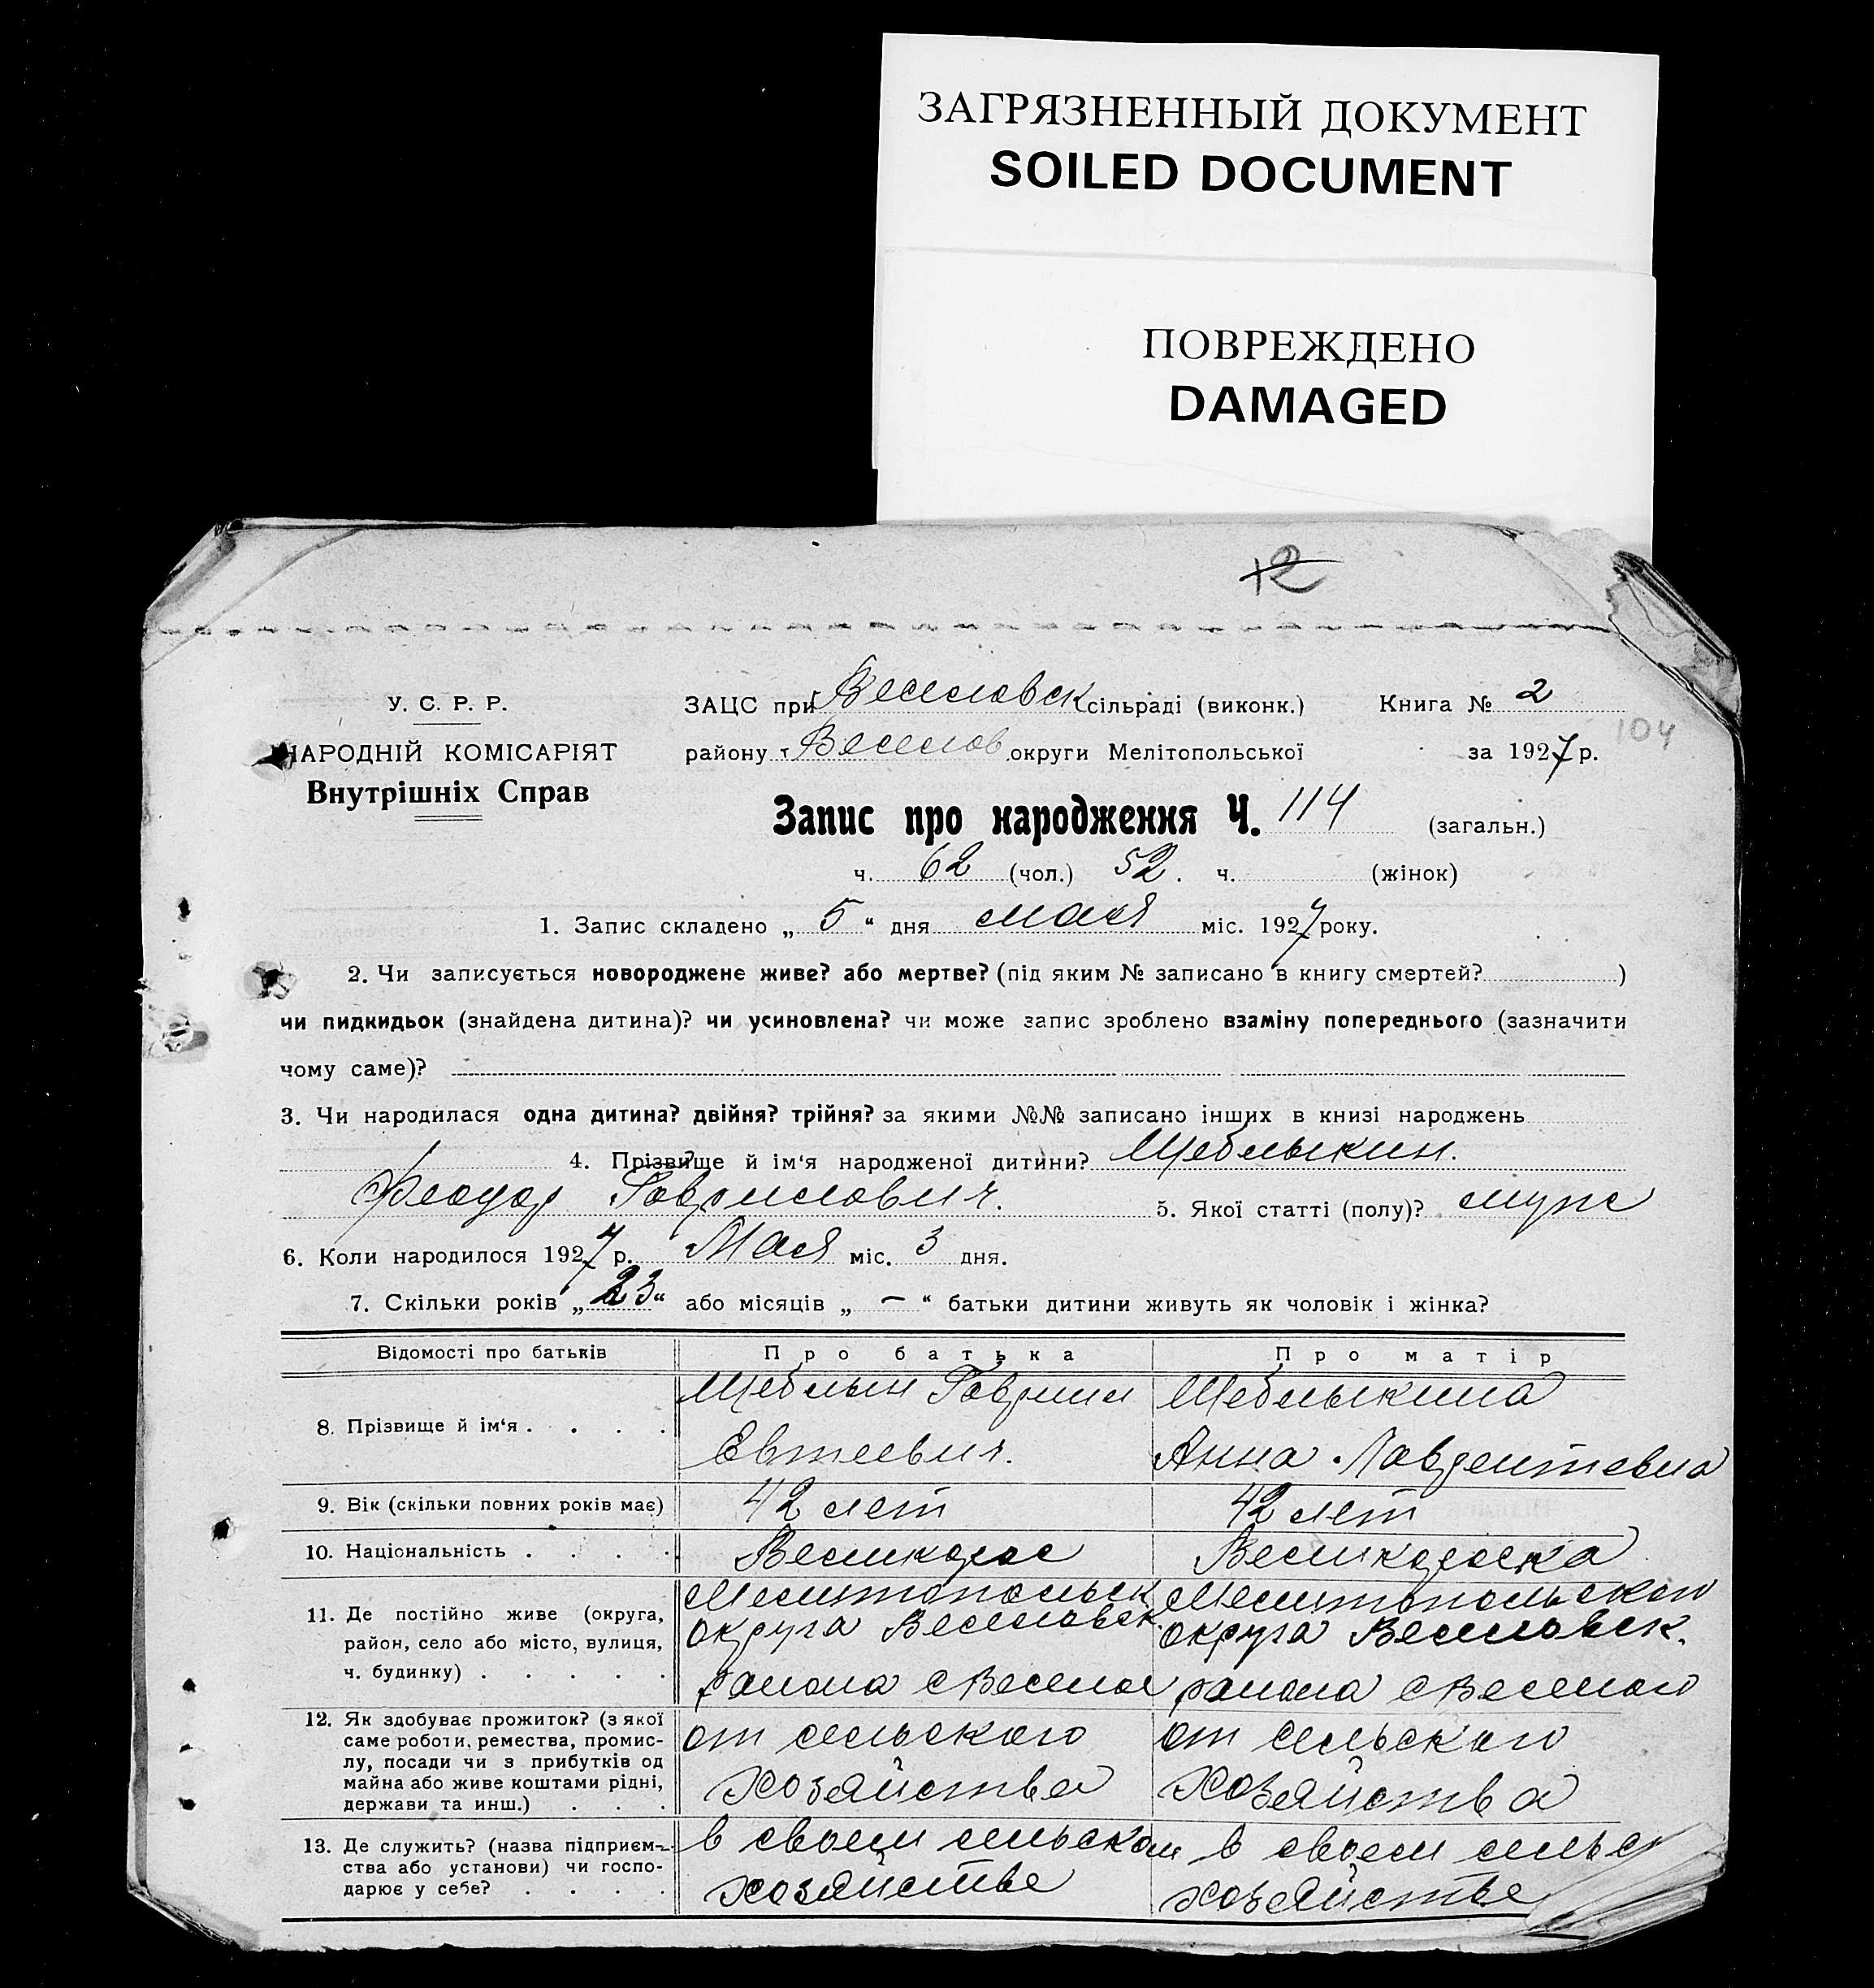 ЗАГРЯЗНЕННЫЙ ДОКУМЕНТ
SOILED DOCUMENT
ПОВРЕЖДЕНО
DAMAGED
12
У. С. Р. Р.
НАРОДНІЙ КОМІСАРІЯТ
Внутрішніх Справ
ЗАЦС при Веселовск сільраді (виконк.) Книга № 2
104
району Веселов округи Мелітопольської за 1927 р.
Запис про народження Ч. 114 (загальн.)
ч. 62 (чол.) 52. ч. (жінок)
1. Запис складено „ 5 “ дня мая міс. 1927 року.
2. Чи записується новороджене живе? або мертве? (під яким № записано в книгу смертей? )
чи пидкидьок (знайдена дитина)? чи усиновлена? чи може запис зроблено взаміну попереднього (зазначити
чому саме)?
3. Чи народилася одна дитина? двійня? трійня? за якими №№ записано інших в книзі народжень
4. Прізвище й ім‘я народженої дитини? Щеблыкин.
Феодор Гаврилович. 5. Якої статті (полу)? муж
6. Коли народилося 1927 р. Мая міс. 3 дня.
7. Скільки років „ 23 “ або місяців „ — “ батьки дитини живуть як чоловік і жінка?
Відомості про батьків Про батька Про матір
8. Прізвище й ім‘я . . . .
Щеблын Гавриил
Евтеевич.
Щеблыкина
Анна Лаврентевна
9. Вік (скільки повних років має) 42 лет 42 лет
10. Національність . . . . Великорос Великороска
11. Де постійно живе (округа,
район, село або місто, вулиця,
ч. будинку) . . . . .
Мелитопольск
округа Веселовск.
раиона с Веселое
Мелитопольского
округа Веселовск.
раиона с Веселого
12. Як здобуває прожиток? (з якої
саме роботи, ремества, промис-
лу, посади чи з прибутків од
майна або живе коштами рідні,
держави та инш.) . . .
от сельского
хозяйства
от сельского
хозяйства
13. Де служить? (назва підприєм-
ства або установи) чи госпо-
дарює у себе? . . . .
в своем сельском
хозяйстве
в своем сельс
хозяйстве